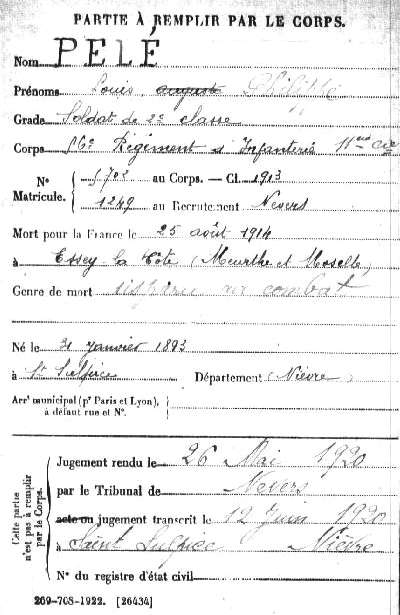 PARTIE À REMPLIR PAR LE CORPS.
Nom PELÉ
Prénoms Louis auguste Philippe
Grade Soldat de 2e classe
Corps 56e Régiment d'Infanterie 11me Cie
N° Matricule. 5702 au Corps. — Cl. 1913
1249 au Recrutement Nevers
Mort pour la France le 25 août 1914
à Essey la Côte (Meurthe et Moselle)
Genre de mort disparu au combat
Né le 31 janvier 1893
à St Sulpice Département (Nièvre)
Arrt municipal (pr Paris et Lyon), à défaut rue et N°.
Cette partie n'est pas à remplir par le Corps.
Jugement rendu le 26 Mai 1920
par le Tribunal de Nevers
acte ou jugement transcrit le 12 Juin 1920
à Saint Sulpice Nièvre
N° du registre d'état civil
269-708-1922. [26434]